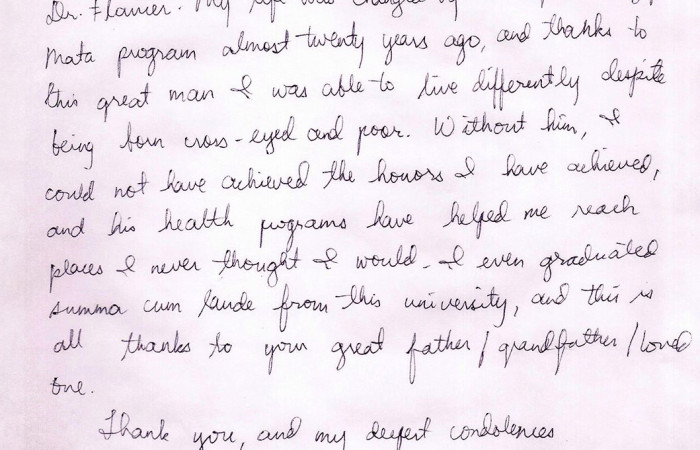 Dr. Flamer. My life was changed by
Mata program almost twenty years ago, and thanks to
this great man I was able to live differently despite
being born cross-eyed and poor. Without him, I
could not have achieved the honors I have achieved,
and his health programs have helped me reach
places I never thought I would - I even graduated
summa cum laude from this university, and this is
all thanks to your great father/grandfather/loved
one.
Thank you, and my deepest condolences